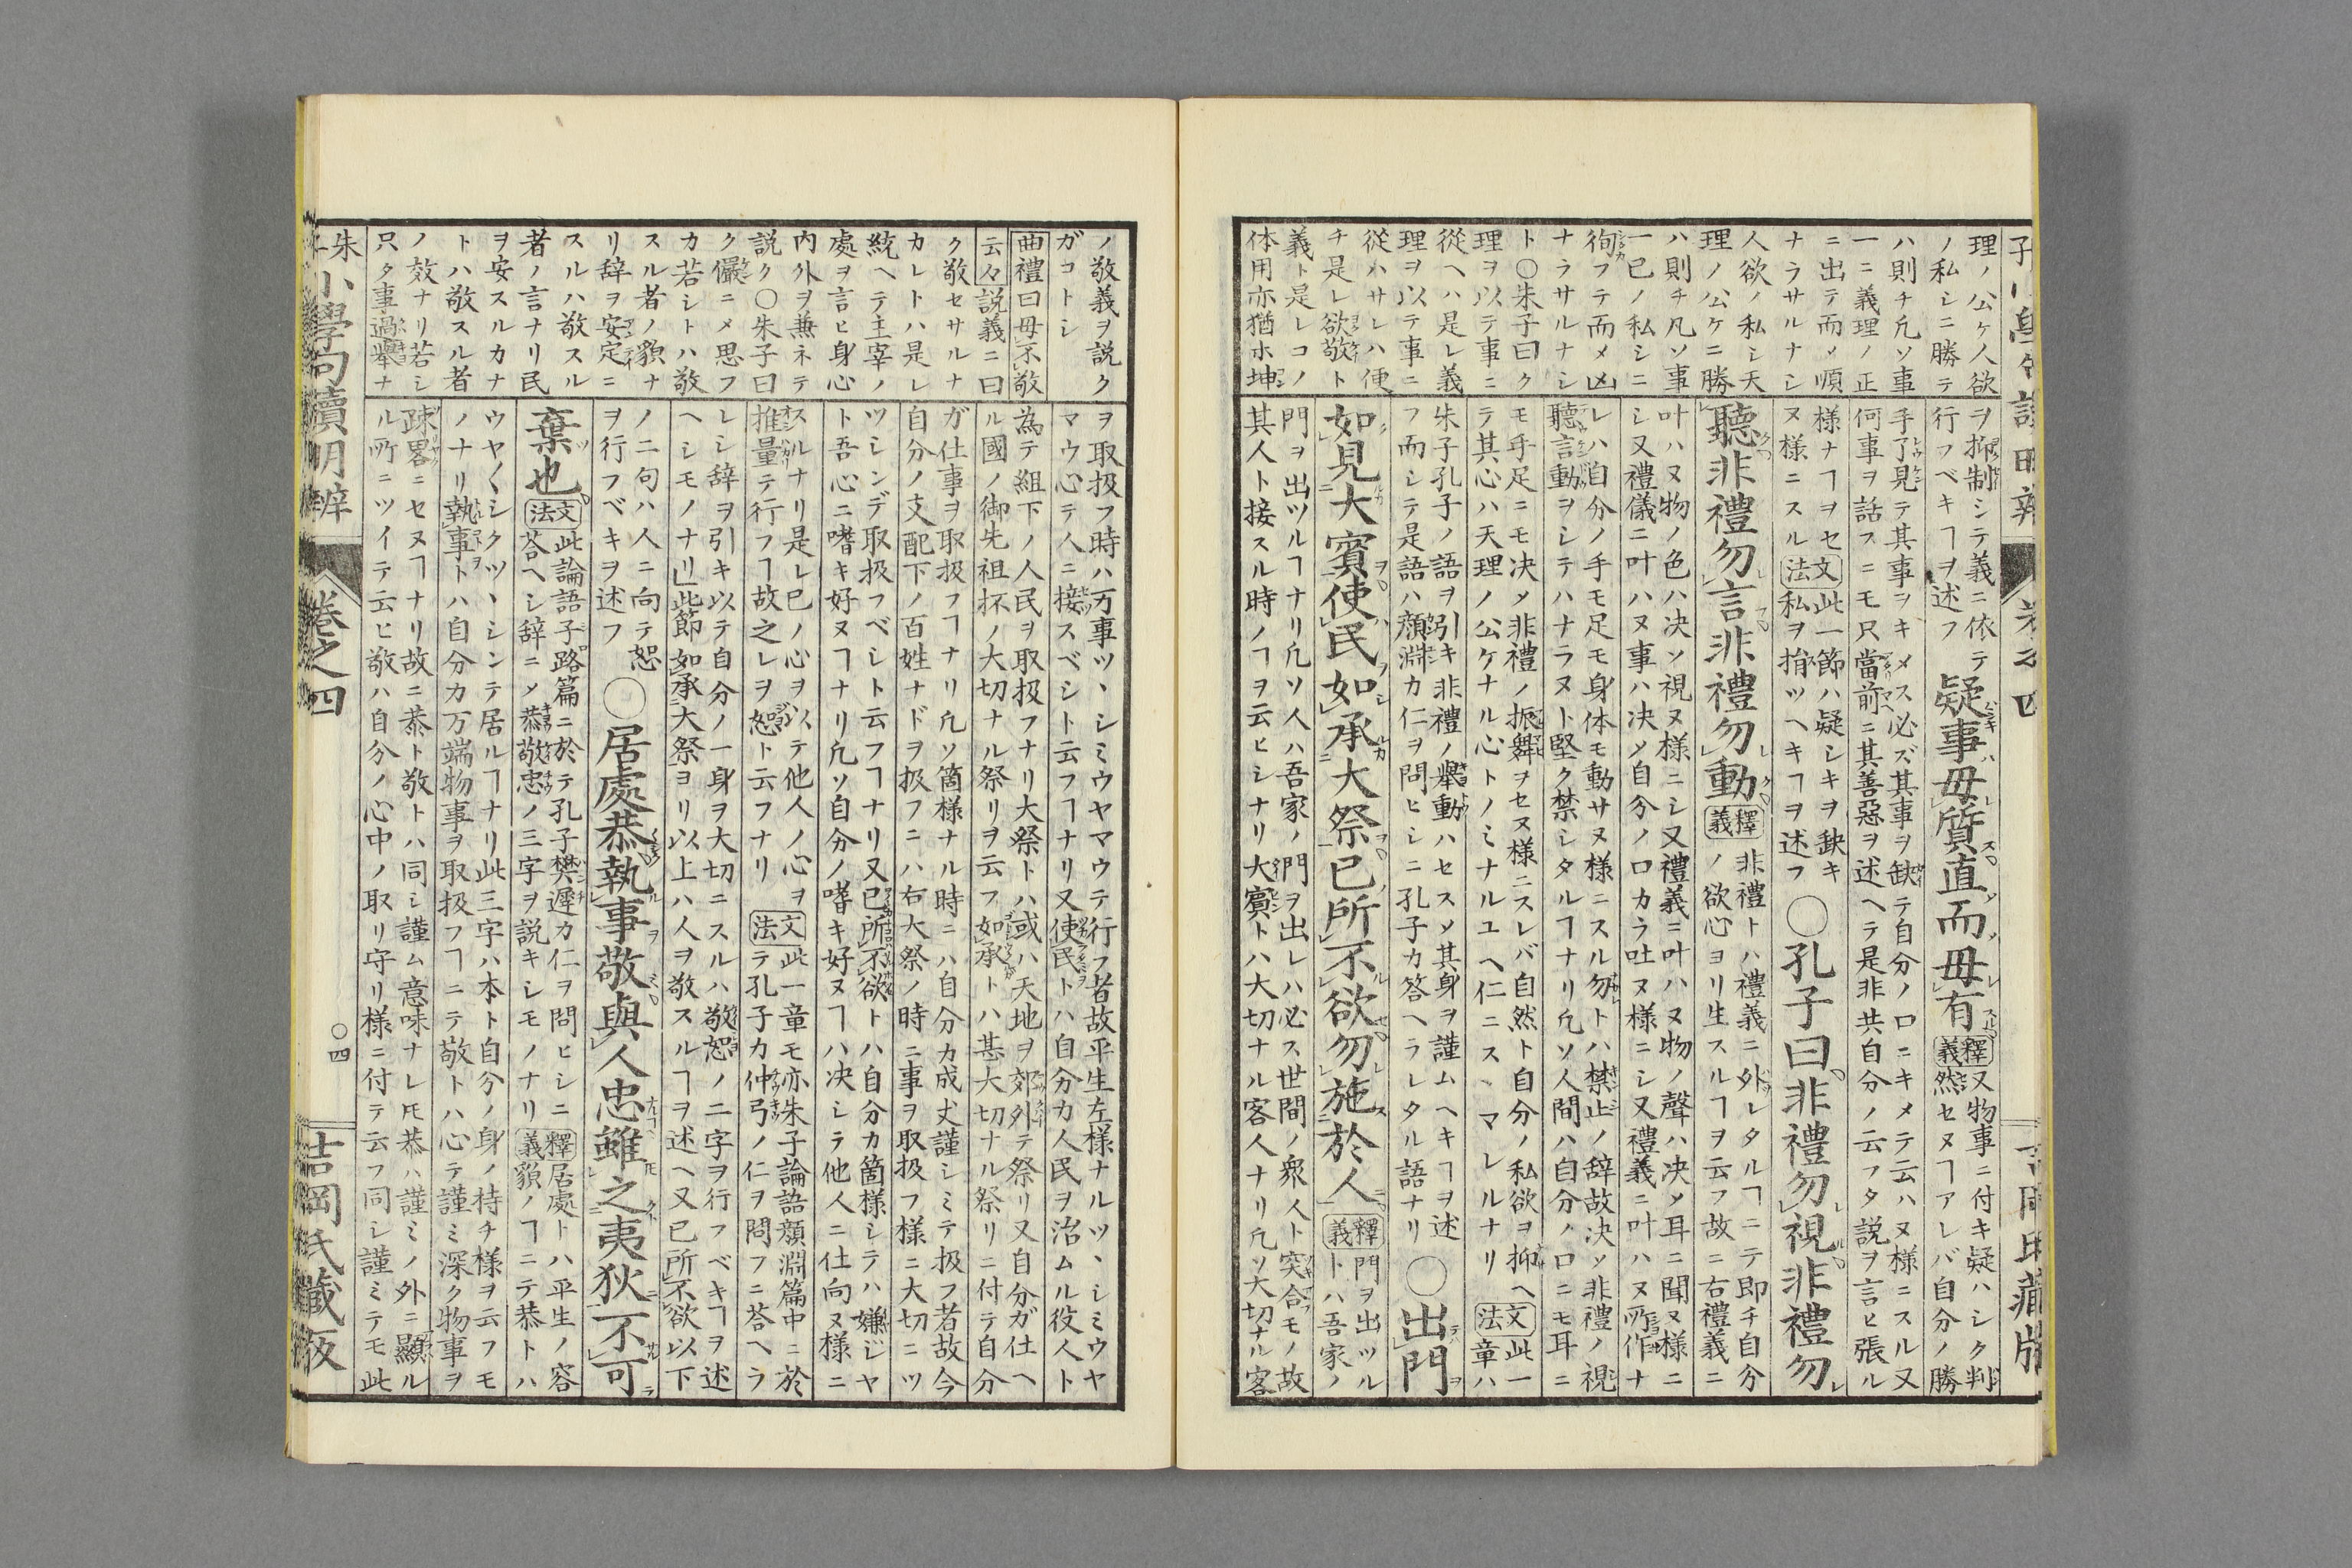 理ノ公ケ人欲
ノ私シニ勝テ
ハ則チ凡ソ事
一ニ義理ノ正
ニ出テ而メ順
ナラサルナシ
人欲ノ私シ天
理ノ公ケニ勝
ハ則チ凡ソ事
一已ノ私シニ
徇フテ而メ凶
ナラサルナシ
ト〇朱子曰ク
理ヲ以テ事ニ
從ヘハ是レ義
理ヲ以テ事ニ
從ハサレハ便
チ是レ欲敬ト
義ト是レコノ
体用亦猶ホ坤
ヲ抑制シテ義ニ依テ
行フベキヿヲ述フ
疑事毋質直而毋有
釋義
又物事ニ付キ疑ハシク判
然セヌヿアレバ自分ノ勝
手了見テ其事ヲキメス必ズ其事ヲ缺テ自分ノ口ニキメテ云ハヌ様ニスル又
何事ヲ話スニモ只當前ニ其善惡ヲ述ヘテ是非共自分ノ云フタ説ヲ言ヒ張ル
様ナヿヲセ
ヌ様ニスル
文法
此一節ハ疑シキヲ缺キ
私ヲ捐ツヘキヿヲ述フ
〇孔子曰非禮勿視非禮勿
聽非禮勿言非禮勿動
釋義
非禮トハ禮義ニ外レタルヿニテ即チ自分
ノ欲心ヨリ生スルヿヲ云フ故ニ右禮義ニ
叶ハヌ物ノ色ハ决ソ視ヌ様ニシ又禮義ニ叶ハヌ物ノ聲ハ决メ耳ニ聞ヌ様ニ
シ又禮儀ニ叶ハヌ事ハ决メ自分ノ口カラ吐ヌ様ニシ又禮義ニ叶ハヌ所作ナ
レハ自分ノ手モ足モ身体モ動サヌ様ニスル勿トハ禁止ノ辞故决ソ非禮ノ視
聽言動ヲシテハナラヌト堅ク禁シタルヿナリ凡ソ人間ハ自分ノ口ニモ耳ニ
モ手足ニモ决メ非禮ノ振舞ヲセヌ様ニスレバ自然ト自分ノ私欲ヲ抑ヘ
テ其心ハ天理ノ公ケナル心トノミナルユヘ仁ニスヽマレルナリ
文法
此一
章ハ
朱子孔子ノ語ヲ引キ非禮ノ擧動ハセスソ其身ヲ謹ムヘキヿヲ述
フ而シテ是語ハ顔淵カ仁ヲ問ヒシニ孔子カ答ヘラレタル語ナリ
〇出門
如見大賓使民如承大祭已所不欲勿施於人
釋義
門ヲ出ツル
トハ吾家ノ
門ヲ出ツルヿナリ凡ソ人ハ吾家ノ門ヲ出レハ必ス世間ノ衆人ト突合モノ故
其人ト接スル時ノヿヲ云ヒシナリ大賓トハ大切ナル客人ナリ凡ソ大切ナル客
ノ敬義ヲ説ク
ガコトシ
曲禮曰毋不敬
云々説義ニ曰
ク敬セサルナ
カレトハ是レ
統ヘテ主宰ノ
處ヲ言ヒ身心
内外ヲ兼ネテ
説ク〇朱子曰
ク儼ニメ思フ
カ若シトハ敬
スル者ノ貌ナ
リ辞ヲ安定ニ
スルハ敬スル
者ノ言ナリ民
ヲ安スルカナ
トハ敬スル者
ノ效ナリ若シ
只タ事過擧ナ
ヲ取扱フ時ハ万事ツヽシミウヤマウテ行フ者故平生左様ナルツヽシミウヤ
マウ心テ人ニ接スベシト云フヿナリ又使民トハ自分カ人民ヲ治ムル役人ト
為テ組下ノ人民ヲ取扱フナリ大祭トハ或ハ天地ヲ郊外テ祭リ又自分ガ仕ヘ
ル國ノ御先祖抔ノ大切ナル祭リヲ云フ如承トハ甚大切ナル祭リニ付テ自分
ガ仕事ヲ取扱フヿナリ凡ソ箇様ナル時ニハ自分カ成丈謹シミテ扱フ者故今
自分ノ支配下ノ百姓ナドヲ扱フニハ右大祭ノ時ニ事ヲ取扱フ様ニ大切ニツ
ツシンデ取扱フベシト云フヿナリ又已所不欲トハ自分カ箇様シテハ嫌ジヤ
ト吾心ニ嗜キ好ヌヿナリ凡ソ自分ノ嗜キ好ヌヿハ决シテ他人ニ仕向ヌ様ニ
スルナリ是レ已ノ心ヲ以テ他人ノ心ヲ
推量テ行フヿ故之レヲ恕ト云フナリ
文法
此一章モ亦朱子論語顔淵篇中ニ於
テ孔子カ仲弓ノ仁ヲ問フニ荅ヘラ
レシ辞ヲ引キ以テ自分ノ一身ヲ大切ニスルハ敬恕ノ二字ヲ行フベキヿヲ述
ヘシモノナリ此節如承大祭ヨリ以上ハ人ヲ敬スルヿヲ述ヘ又已所不欲以下
ノ二句ハ人ニ向テ恕
ヲ行フベキヲ述フ
〇居處恭執事敬與人忠雖之夷狄不可
棄也
文法
此論語子路篇ニ於テ孔子樊遲カ仁ヲ問ヒシニ
荅ヘシ辞ニメ恭敬忠ノ三字ヲ説キシモノナリ
釋義
居處トハ平生ノ容
貌ノヿニテ恭トハ
ウヤ〱シクツヽシンテ居ルヿナリ此三字ハ本ト自分ノ身ノ持チ様ヲ云フモ
ノナリ執事トハ自分カ万端物事ヲ取扱フヿニテ敬トハ心テ謹ミ深ク物事ヲ
疎畧ニセヌヿナリ故ニ恭ト敬トハ同シ謹ム意味ナレ𪜈恭ハ謹ミノ外ニ顯ル
ル所ニツイテ云ヒ敬ハ自分ノ心中ノ取リ守リ様ニ付テ云フ同シ謹ミテモ此
朱子小學句讀明辨
卷之四
〇四
吉岡氏藏版